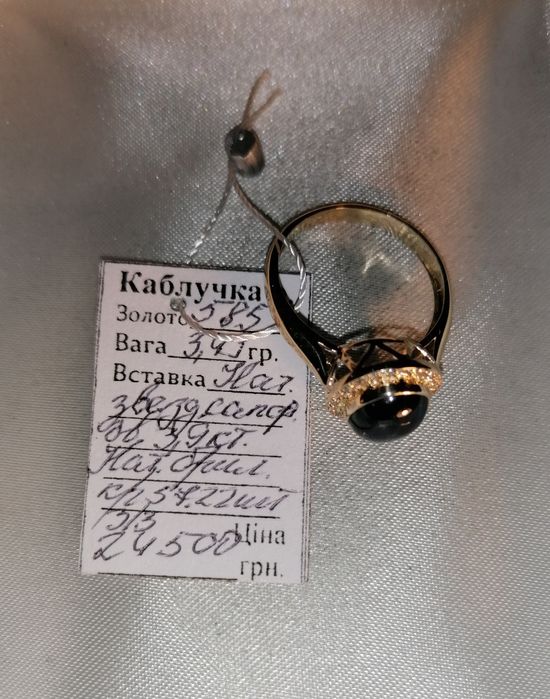 Каблучка
Золото 585
Вага 3,41 гр.
Вставка Нат.
звезд. сапф
3,9 кт.
Нат. брил.
кр 57. 22 шт
3/3 Ціна
24500
грн.